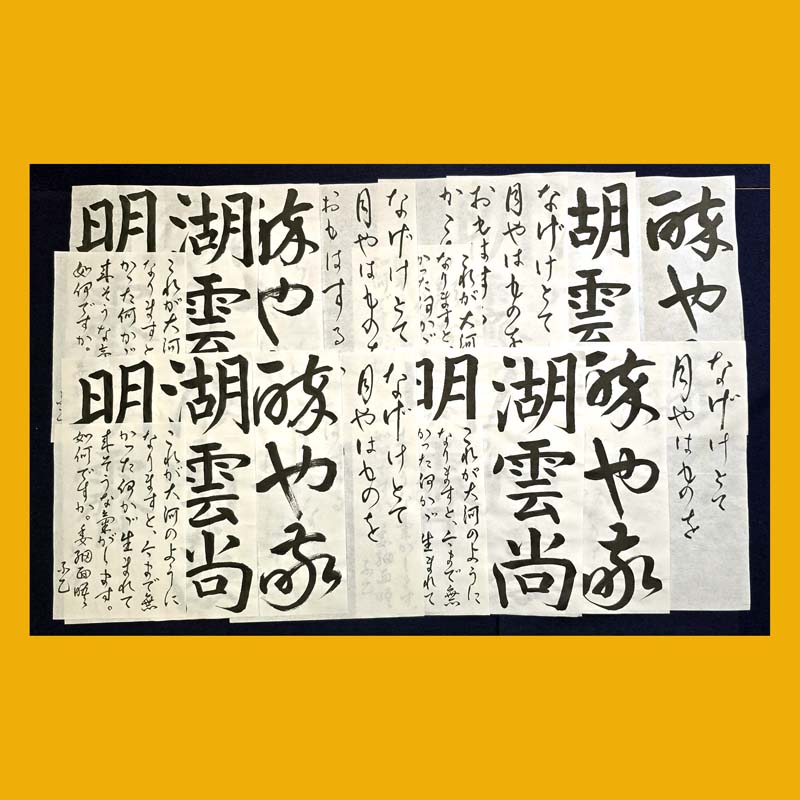 酔や
胡雲
なげけとて
月やはものを
なげけとて
月やはもの
おもはする
酔や
湖雲
明
これが大河
なりますと
かった何かが
これが大河
なりますと
かった何かが
来そうな
如何ですか。
なげけとて
月やはものを
酔や
湖雲尚
明
これが大河のように
なりますと、今まで無
かった何かが生まれて
なげけとて
月やはものを
酔や
湖雲尚
明
これが大河のように
なりますと、今まで無
かった何かが生まれて
来そうな氣がします。
如何ですか。委細面晤